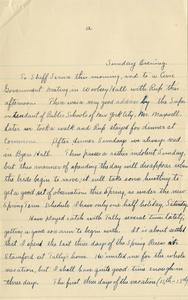 2
Sunday Evening.
To Stiff Service this morning, and to a Civic
Government Meeting in Woolsey Hall with Rufe this
afternoon. There was a very good address by the Super-
intendent of Public Schools of New York City, Mr. Maxwell.
Later we took a walk and Rufe stayed for dinner at
Commons. After dinner Sundays we always read
in Byers Hall. I have rather indolent Sunday,
but this manner of spending the day will disappear when
the birds begin to move, it will take some hustling to
get a good set of observations this Spring, as under the new
Spring Term Schedule I have only one half holiday, Saturday.
Have played catch with Tully several times lately,
getting a good sore arm to begin with. It is about settled
that I spend the last three days of the Spring Recess at
Stamford at Tully's home. He invited me for the whole
vacation, but I shall have quite good time enough in
three days. The first three days of the vacation